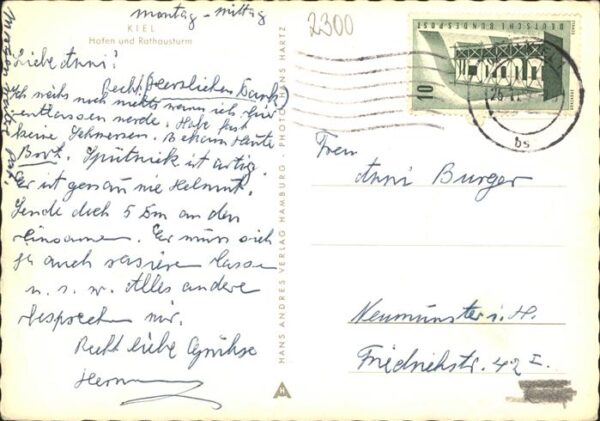 montag - mittag
2300
KIEL
Hafen und Rathausturm
Liebe Anni!
Recht (Herzlichen Dank)
Ich weiß noch nichts wann ich hier
entlassen werde. Habe fast
keine Schmerzen. Bekam heute
Brot. Sputnick ist artig.
Er ist genau wie Helmut.
Sende doch 5 Dm an den
Einsamen. Er muss sich
ja auch rasieren lassen
u. s. w. Alles andere
besprechen wir.
Recht liebe Grüsse
Hermann
HANS ANDRES VERLAG HAMBURG - PHOTO: HANS HARTZ
DEUTSCHE BUNDESPOST
10
bs
Frau
Anni Burger
Neumünster i. H.
Friedrichstr. 42 I.